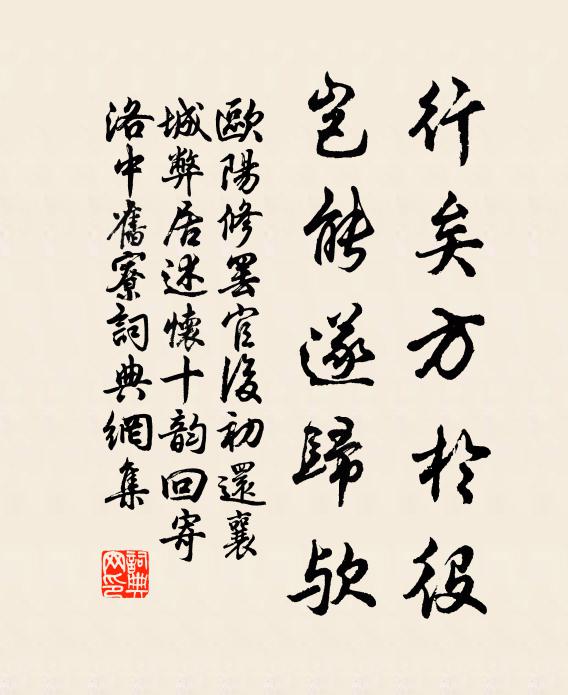 行矣方於役
豈能遂歸欤
歐陽修罷官後初還襄
城弊居述懷十韵回寄
洛中舊寮詞典網集
詞典
网印